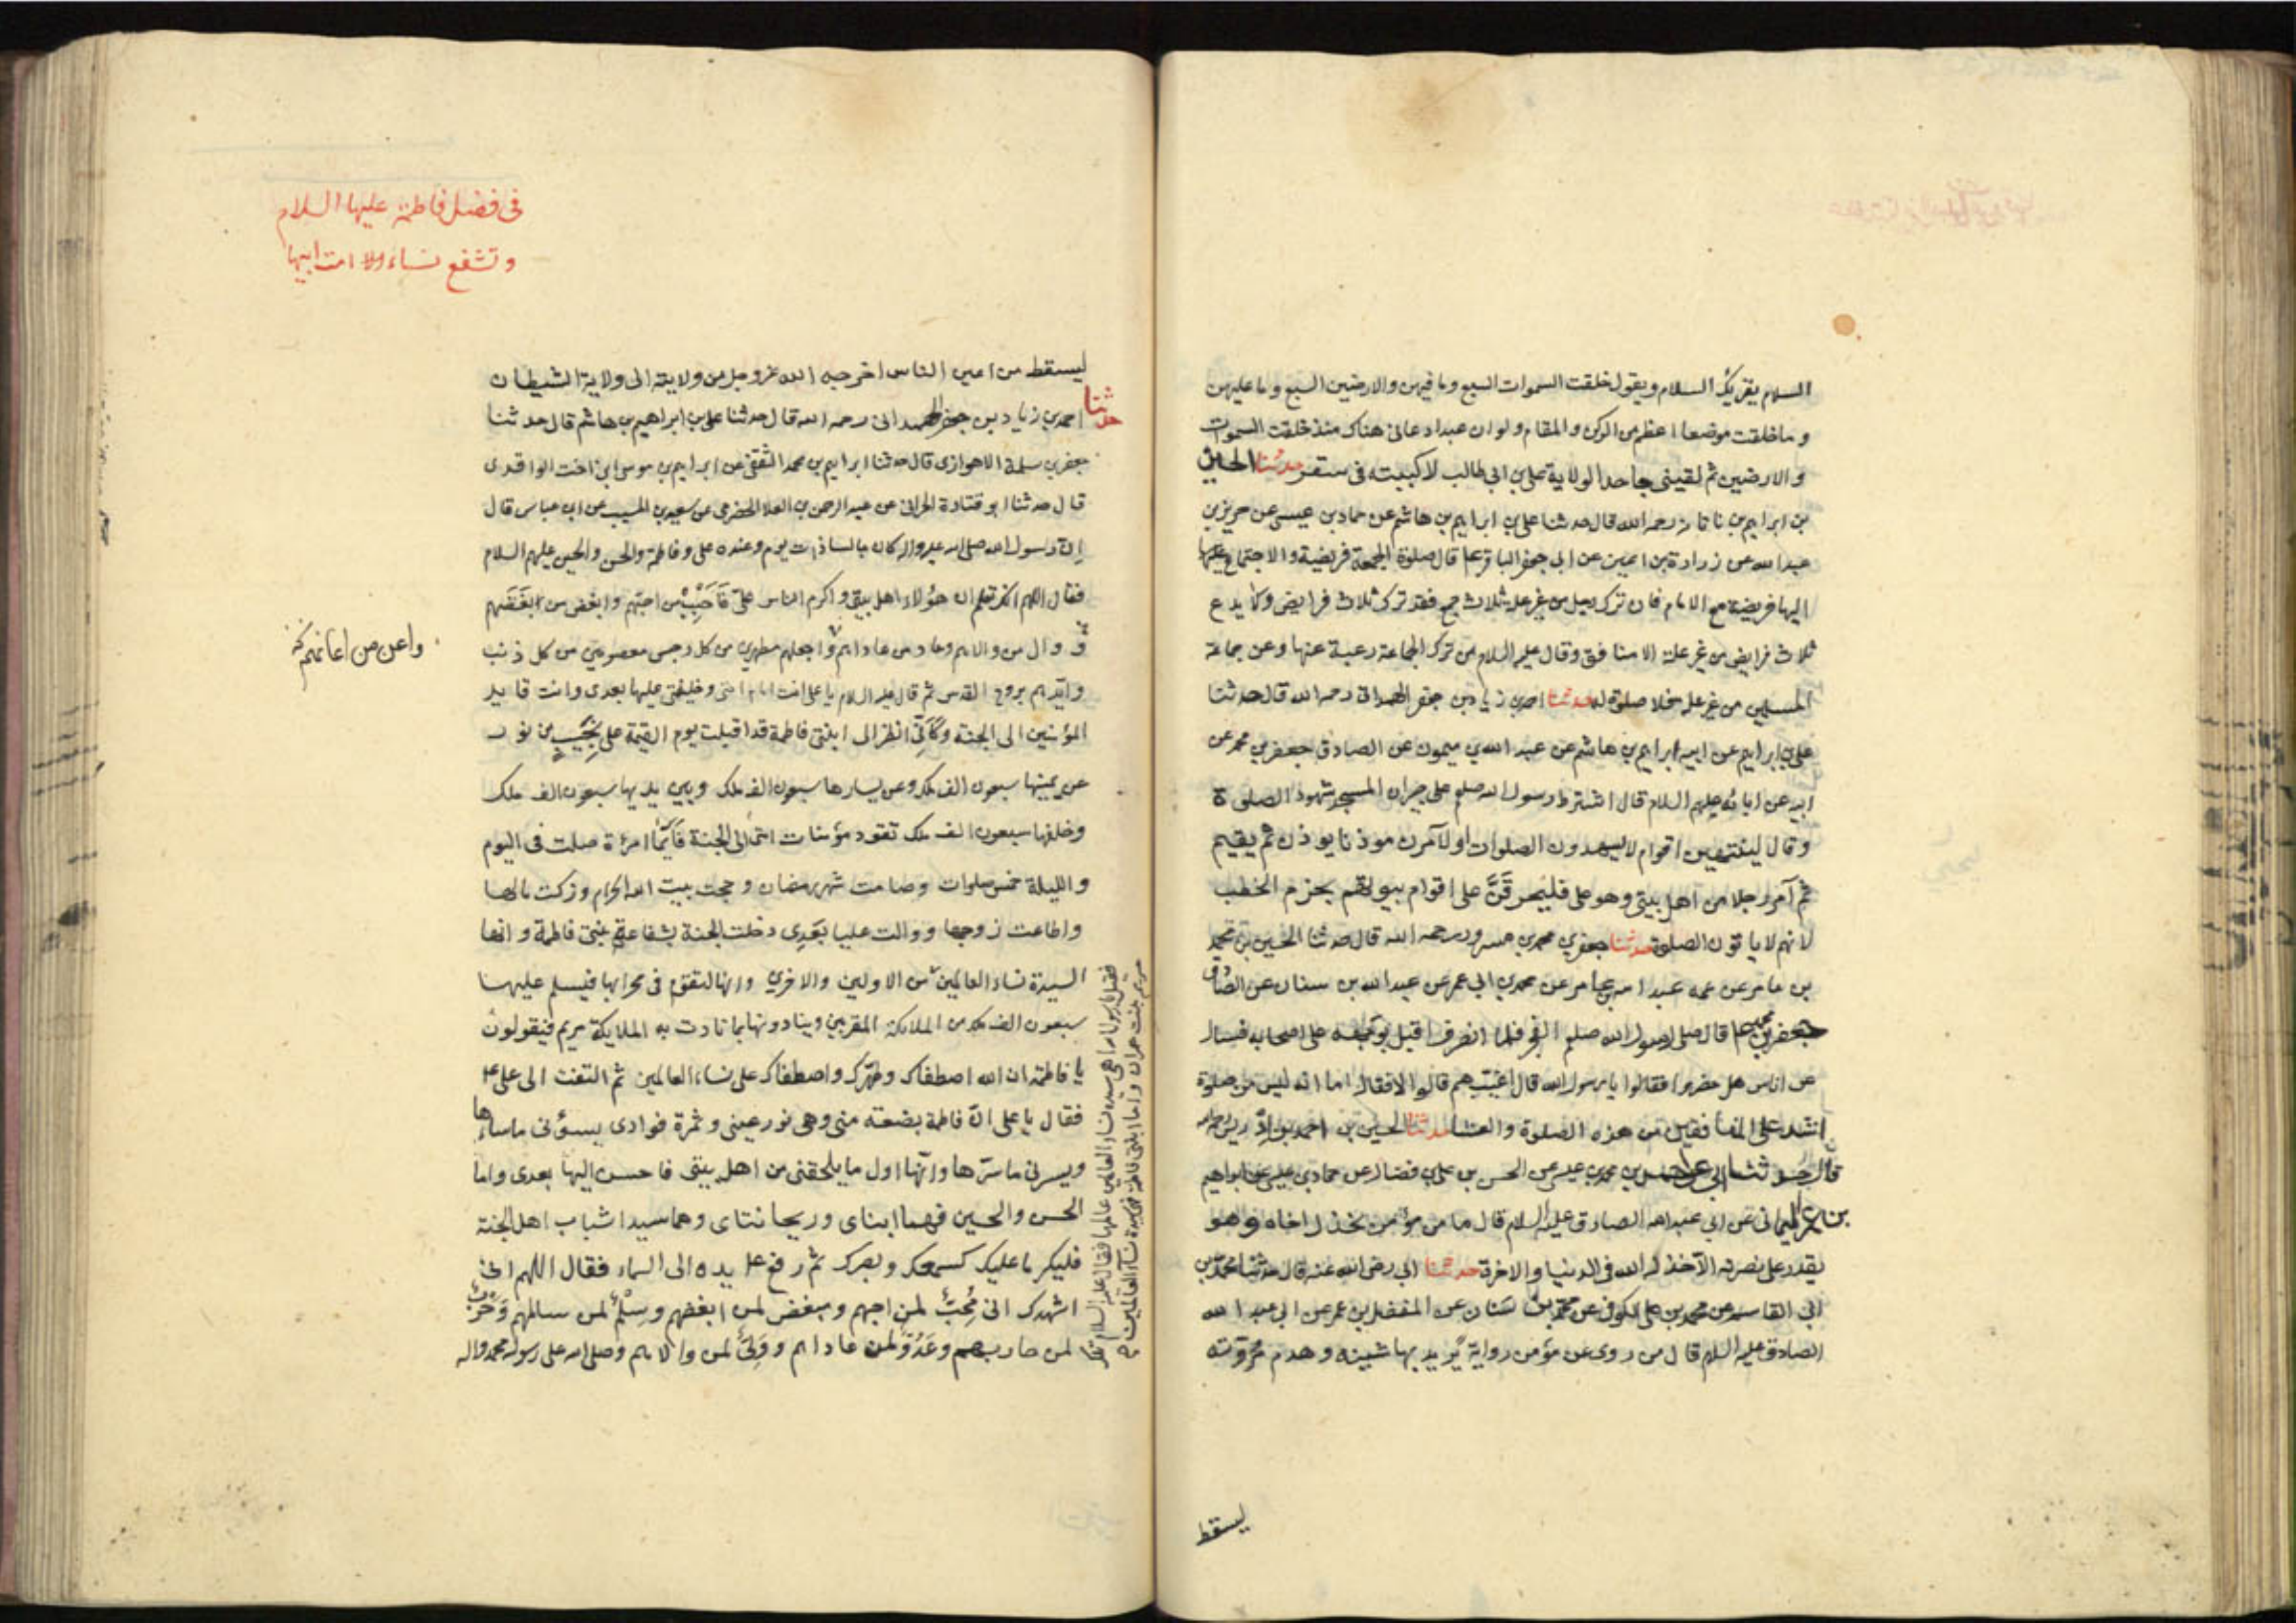 السلام يقريك السلام ويقول خلقت السموات السبع وما فيهن والارضين السبع وما عليهن
وما خلقت موضعا اعظم من الركن والمقام ولو ان عبدا دعاني هناك منذ خلقت السموات
والارضين ثم لقيني جاحدا لولاية علي بن ابي طالب لاكببته في سقر حدثنا الحسين
بن ابراهيم بن ناتانه رحمه الله قال حدثنا علي بن ابراهيم بن هاشم عن حماد بن عيسى عن حريز بن
عبد الله عن زرارة بن اعين عن ابي جعفر الباقر ع قال صلوة الجمعة فريضة والاجتماع
اليها فريضة مع الامام فان ترك رجل من غير علة ثلاث جمع فقد ترك ثلاث فرايض ولا يدع
ثلاث فرايض من غير علة الا منافق وقال عليه السلام من ترك الجماعة رغبة عنها وعن جماعة
المسلمين من غير علة فلا صلوة له حدثنا احمد بن زياد بن جعفر الهمداني رحمه الله قال حدثنا
علي بن ابراهيم عن ابيه ابراهيم بن هاشم عن عبد الله بن ميمون عن الصادق جعفر بن محمد عن
ابيه عن ابائه عليهم السلام قال اشترط رسول الله صلعم على جيران المسجد شهود الصلوة
وقال لينتهين اقوام لا يشهدون الصلوات او لآمرن موذنا يوذن ثم يقيم
ثم آمر رجلا من اهل بيتي وهو علي فليحرقن على اقوام بيوتهم بحزم الحطب
لانهم لا ياتون الصلوة حدثنا جعفر بن محمد بن مسرور رحمه الله قال حدثنا الحسين بن محمد
بن عامر عن عمه عبد الله بن عامر عن محمد بن ابي عمير عن عبد الله بن سنان عن الصادق
جعفر بن محمد ع قال صلى رسول الله صلعم الفجر فلما انصرف اقبل بوجهه على اصحابه فسال
عن اناس هل حضروا فقالوا يا رسول الله قال اغيب هم قالوا لا فقال اما انه ليس من صلوة
اشد على المنافقين من هذه الصلوة والعشا حدثنا الحسين بن احمد بن ادريس رحمه الله
قال حدثنا ابي عن احمد بن محمد بن عيسى عن الحسن بن علي بن فضال عن حماد بن عيسى عن ابراهيم
بن عمر اليماني عن ابي عبد الله الصادق عليه السلام قال ما من مؤمن يخذل اخاه وهو
يقدر على نصرته الا خذله الله في الدنيا والاخرة حدثنا ابي رضي الله عنه قال حدثنا محمد بن
ابي القاسم عن محمد بن علي الكوفي عن محمد بن سنان عن المفضل بن عمر عن ابي عبد الله
الصادق عليه السلام قال من روى عن مؤمن رواية يريد بها شينه وهدم مروته
ليسقط
في فضل فاطمة عليها السلام
وتشفع نساء امت ابيها
ليسقط من اعين الناس اخرجه الله عز وجل من ولايته الى ولاية الشيطان
حدثنا احمد بن زياد بن جعفر الهمداني رحمه الله قال حدثنا علي بن ابراهيم بن هاشم قال حدثنا
جعفر بن سلمة الاهوازي قال حدثنا ابراهيم بن محمد الثقفي عن ابراهيم بن موسى ابن اخت الواقدي
قال حدثنا ابو قتادة الحراني عن عبد الرحمن بن العلا الحضرمي عن سعيد بن المسيب عن ابن عباس قال
ان رسول الله صلى الله عليه واله كان جالسا ذات يوم وعنده علي وفاطمة والحسن والحسين عليهم السلام
فقال اللهم انك تعلم ان هؤلاء اهل بيتي واكرم الناس علي فاحبب من احبهم وابغض من ابغضهم
ووال من والاهم وعاد من عاداهم واجعلهم مطهرين من كل رجس معصومين من كل ذنب
واعن من اعانهم
وايدهم بروح القدس ثم قال عليه السلام يا علي انت امام امتي وخليفتي عليها بعدي وانت قايد
المؤمنين الى الجنة وكاني انظر الى ابنتي فاطمة قد اقبلت يوم القيمة على نجيب من نور
عن يمينها سبعون الف ملك وعن يسارها سبعون الف ملك وبين يديها سبعون الف ملك
وخلفها سبعون الف ملك تقود مؤمنات امتي الى الجنة فايما امرئة صلت في اليوم
والليلة خمس صلوات وصامت شهر رمضان وحجت بيت الله الحرام وزكت مالها
واطاعت زوجها ووالت عليا بعدي دخلت الجنة بشفاعة بنتي فاطمة وانها
السيدة نساء العالمين من الاولين والاخرين وانها لتقوم في محرابها فيسلم عليها
فقيل يا رسول الله اهي سيدة نساء العالمين عالمها فقال عليه السلام
مريم بنت عمران واما ابنتي فاطمة فهي سيدة نساء العالمين
سبعون الف ملك من الملائكة المقربين وينادونها بما نادت به الملايكة مريم فيقولون
يا فاطمة ان الله اصطفاك وطهرك واصطفاك على نساء العالمين ثم التفت الى علي ع
فقال يا علي ان فاطمة بضعة مني وهي نور عيني وثمرة فوادي يسؤني ما ساءها
ويسرني ما سرها وانها اول ما يلحقني من اهل بيتي فاحسن اليها بعدي واما
الحسن والحسين فهما ابناي وريحانتاي وهما سيدا شباب اهل الجنة
فليكرما عليك كسمعك وبصرك ثم رفع ع يده الى السماء فقال اللهم اني
اشهدك اني محب لمن احبهم ومبغض لمن ابغضهم وسلم لمن سالمهم وحرب
لمن حاربهم وعدو لمن عاداهم وولي لمن والاهم وصلى الله على رسوله محمد واله